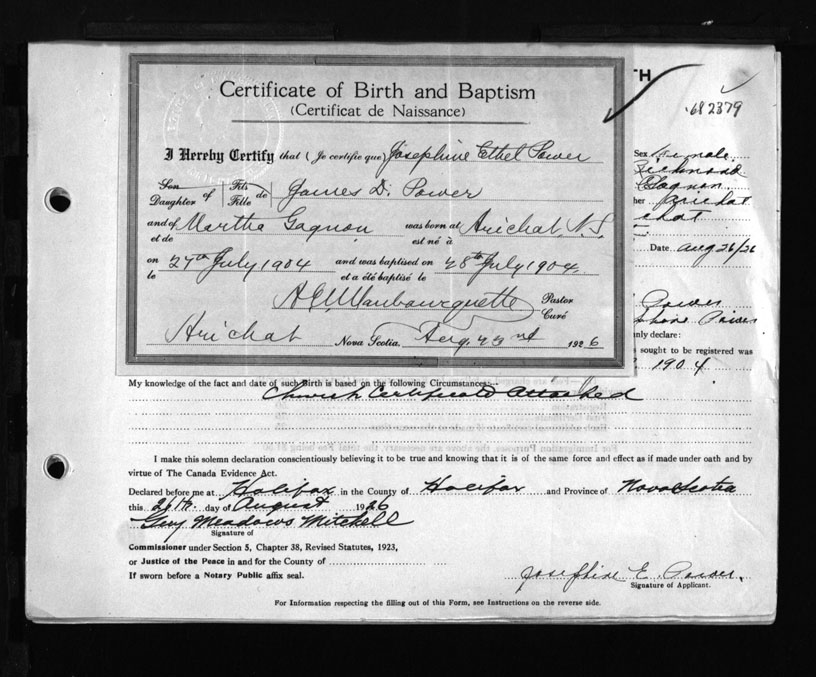 TH
682379
Certificate of Birth and Baptism
(Certificat de Naissance)
I Hereby Certify that (Je certifie que) Josephine Ethel Power
Sex Female
Richmond
Gagnon
Son Daughter of Fils Fille de James D. Power
her Arichat
chat
and of et de Martha Gagnon was born at est né à Arichat, N.S.
Date Aug 26/26
on le 27th July 1904 and was baptised on et a été baptisé le 28th July 1904
Power
Pastor
Curé
phine Power
Arichat Nova Scotia. Aug. 23rd 1926
nly declare:
sought to be registered was
1904
My knowledge of the fact and date of such Birth is based on the following Circumstances:—
Church Certificate Attached
I make this solemn declaration conscientiously believing it to be true and knowing that it is of the same force and effect as if made under oath and by
virtue of The Canada Evidence Act.
Declared before me at Halifax in the County of Halifax and Province of Nova Scotia
this 26th. day of August 1926
Guy Meadows Mitchell
Signature of
Commissioner under Section 5, Chapter 38, Revised Statutes, 1923,
or Justice of the Peace in and for the County of
If sworn before a Notary Public affix seal.
Josephine E. Power.
Signature of Applicant.
For Information respecting the filling out of this Form, see Instructions on the reverse side.